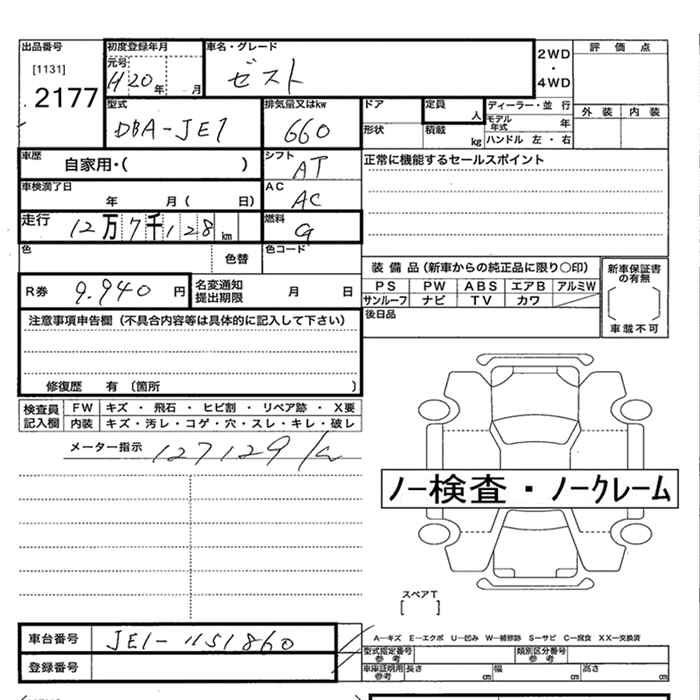 出品番号 初度登録年月 車名・グレード 2WD・4WD 評価点
[1131] 元号 H20年 月 ゼスト
2177
型式 排気量又はkw ドア 定員 人 ディーラー・並行 外装 内装
DBA-JE1 660 形状 積載 kg モデル年式 年
ハンドル 左・右
車歴 自家用・( ) シフト AT 正常に機能するセールスポイント
車検満了日 年 月( 日) AC AC
走行 12万7千128km 燃料 G
色 色替 色コード
装備品(新車からの純正品に限り〇印) 新車保証書の有無
R券 9.940円 名変通知提出期限 月 日 PS PW ABS エアB アルミW
サンルーフ ナビ TV カワ
後日品 車載不可
注意事項申告欄(不具合内容等は具体的に記入して下さい)
修復歴 有 〔箇所 〕
検査員記入欄 FW キズ・飛石・ヒビ割・リペア跡・X要
内装 キズ・汚レ・コゲ・穴・スレ・キレ・破レ
メーター指示 127129k
ノー検査・ノークレーム
スペアT
[ ]
車台番号 JE1-1151860 A―キズ E―エクボ U―凹み W―補修跡 S―サビ C―腐食 XX―交換済
登録番号 型式指定番号参考 類別区分番号参考
車庫証明用参考 長さ cm 幅 cm 高さ cm